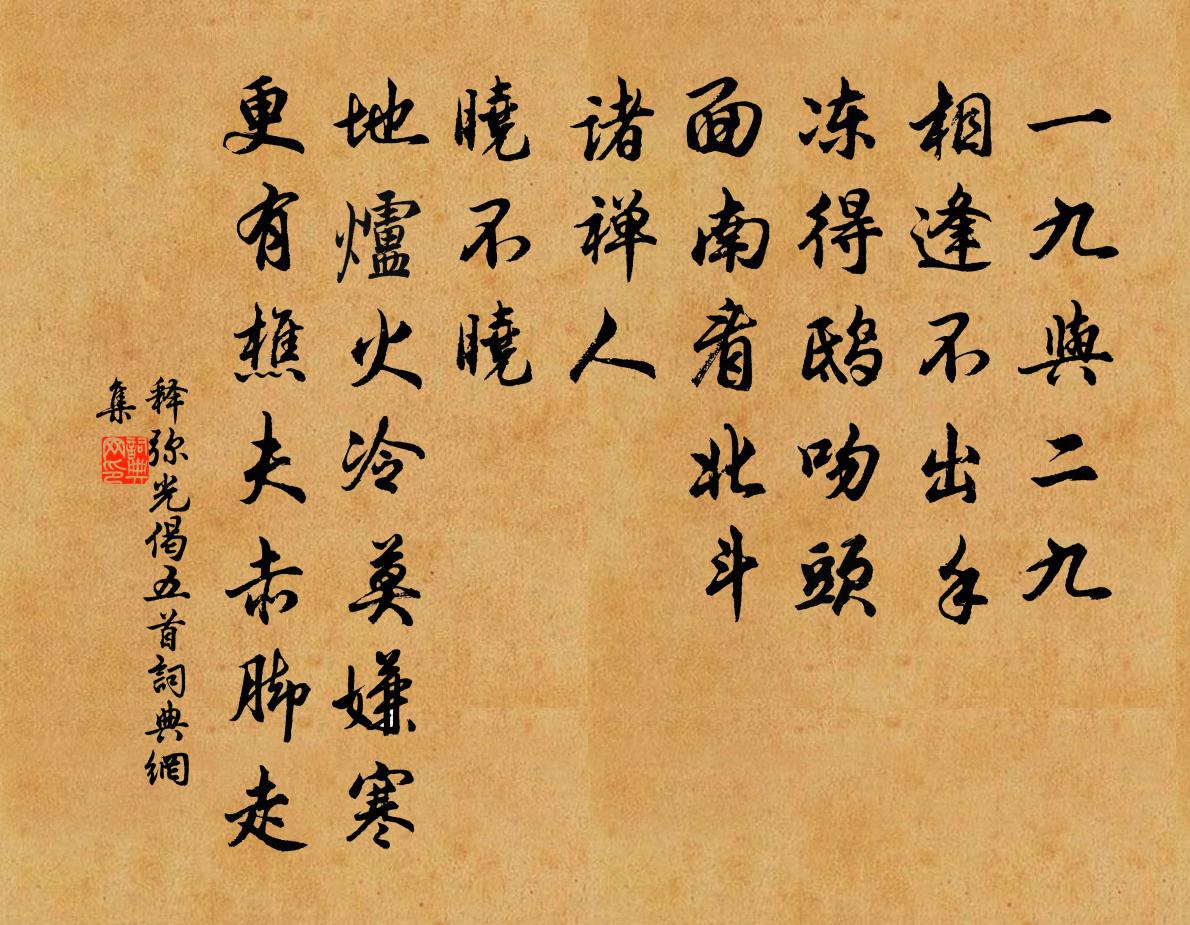 一九與二九
相逢不出手
冻得鸱吻頭
面南看北斗
诸禅人
曉不曉
地爐火冷莫嫌寒
更有樵夫赤脚走
释弥光偈五首詞典網
集